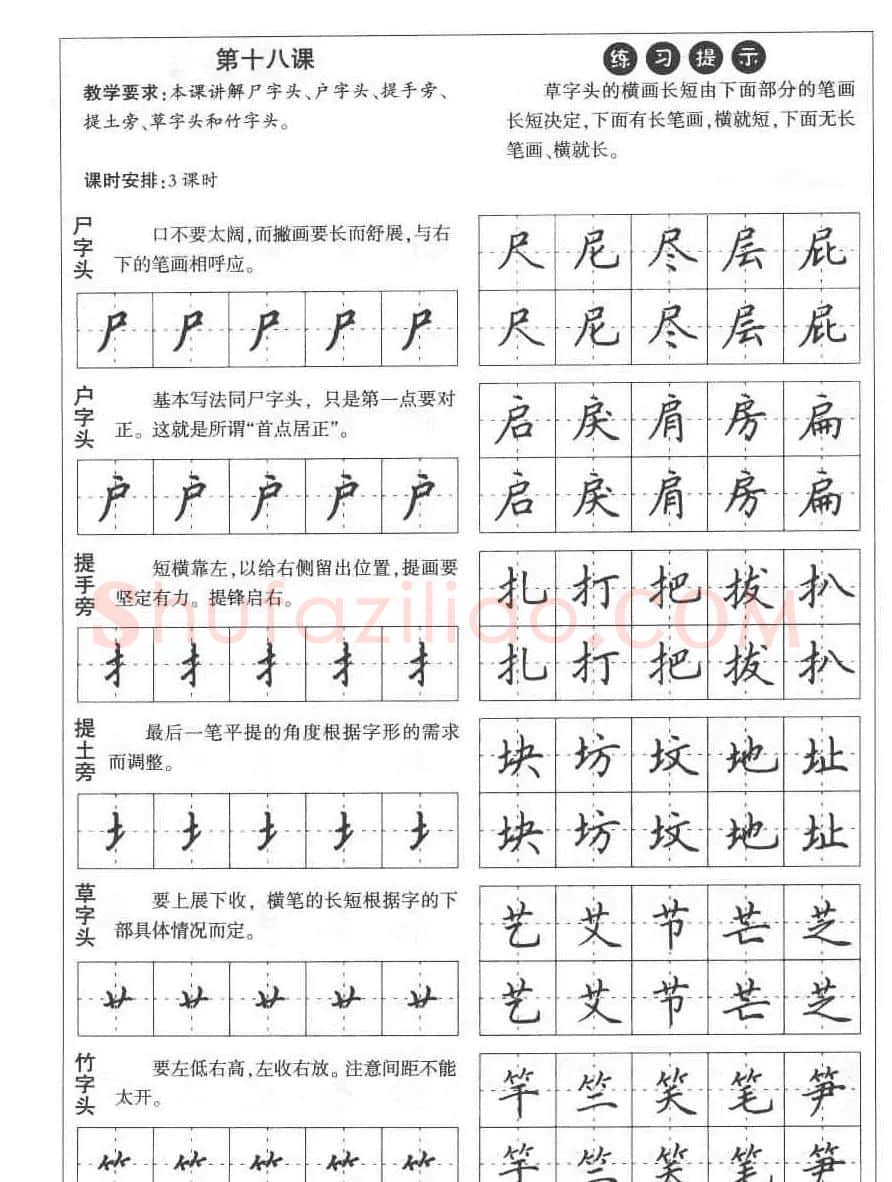 第十八课
教学要求:本课讲解尸字头、户字头、提手旁、
提土旁、草字头和竹字头。
课时安排:3课时
练习提示
草字头的横画长短由下面部分的笔画
长短决定,下面有长笔画,横就短,下面无长
笔画、横就长。
尸字头
口不要太阔,而撇画要长而舒展,与右
下的笔画相呼应。
尸尸尸尸尸
尺尼尽层屁
尺尼尽层屁
户字头
基本写法同尸字头，只是第一点要对
正。这就是所谓“首点居正”。
户户户户户
启戾肩房扁
启戾肩房扁
提手旁
短横靠左,以给右侧留出位置,提画要
坚定有力。提锋启右。
扌扌扌扌扌
扎打把拔扒
扎打把拔扒
提土旁
最后一笔平提的角度根据字形的需求
而调整。
土土土土土
块坊坟地址
块坊坟地址
草字头
要上展下收，横笔的长短根据字的下
部具体情况而定。
艹艹艹艹艹
艺艾节芒芝
艺艾节芒芝
竹字头
要左低右高,左收右放。注意间距不能
太开。
⺮⺮⺮⺮⺮
竿竺笑笔笋
竿竺笑笔笋
Shufaziliao.COM